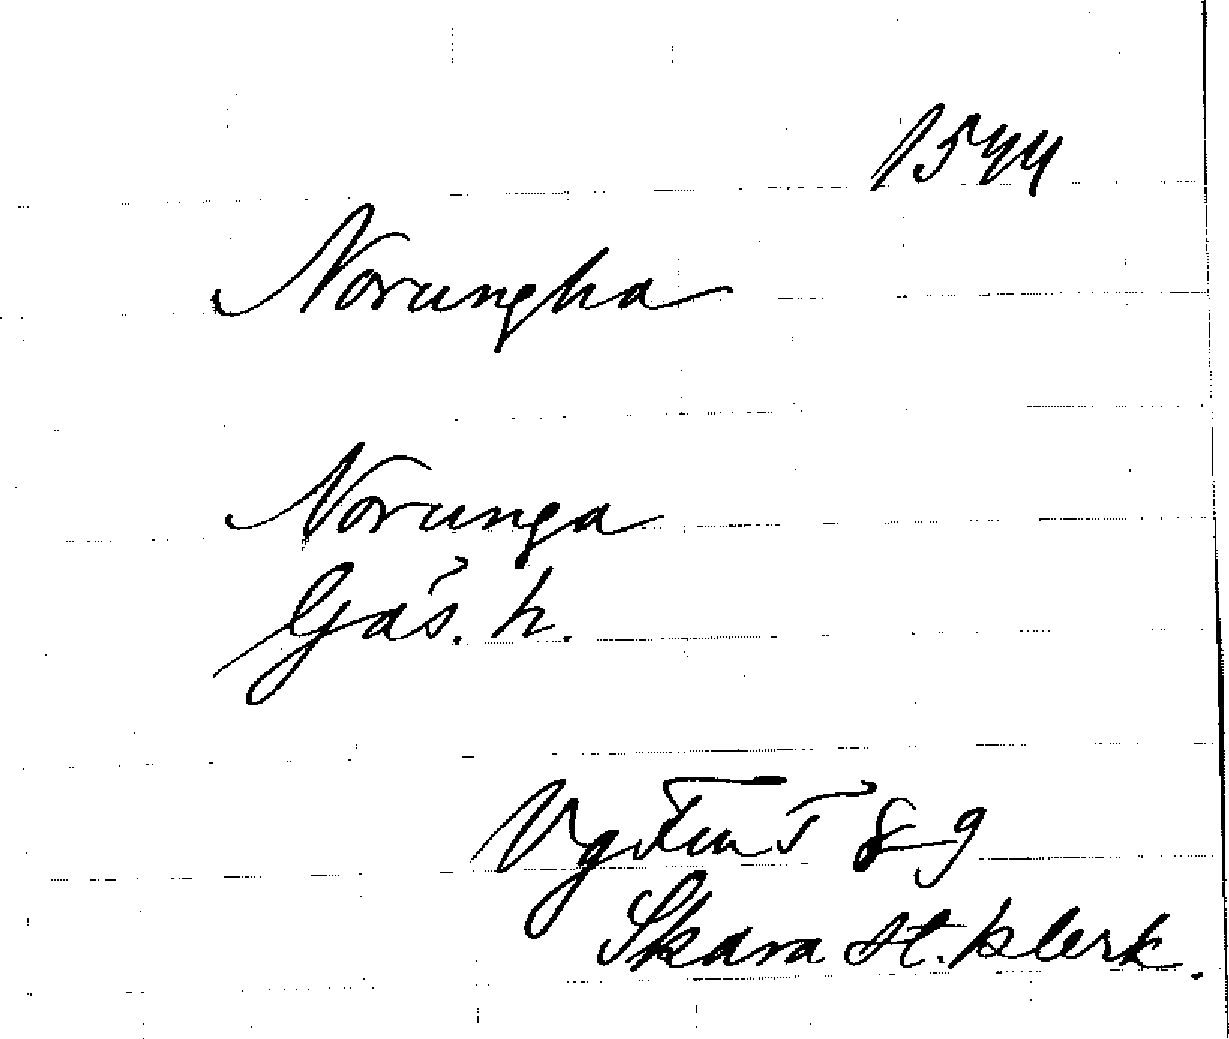 1544
Norungha
Norunga
Gäs. h.
Vg Fur T 8-9
Skara st. klerk.